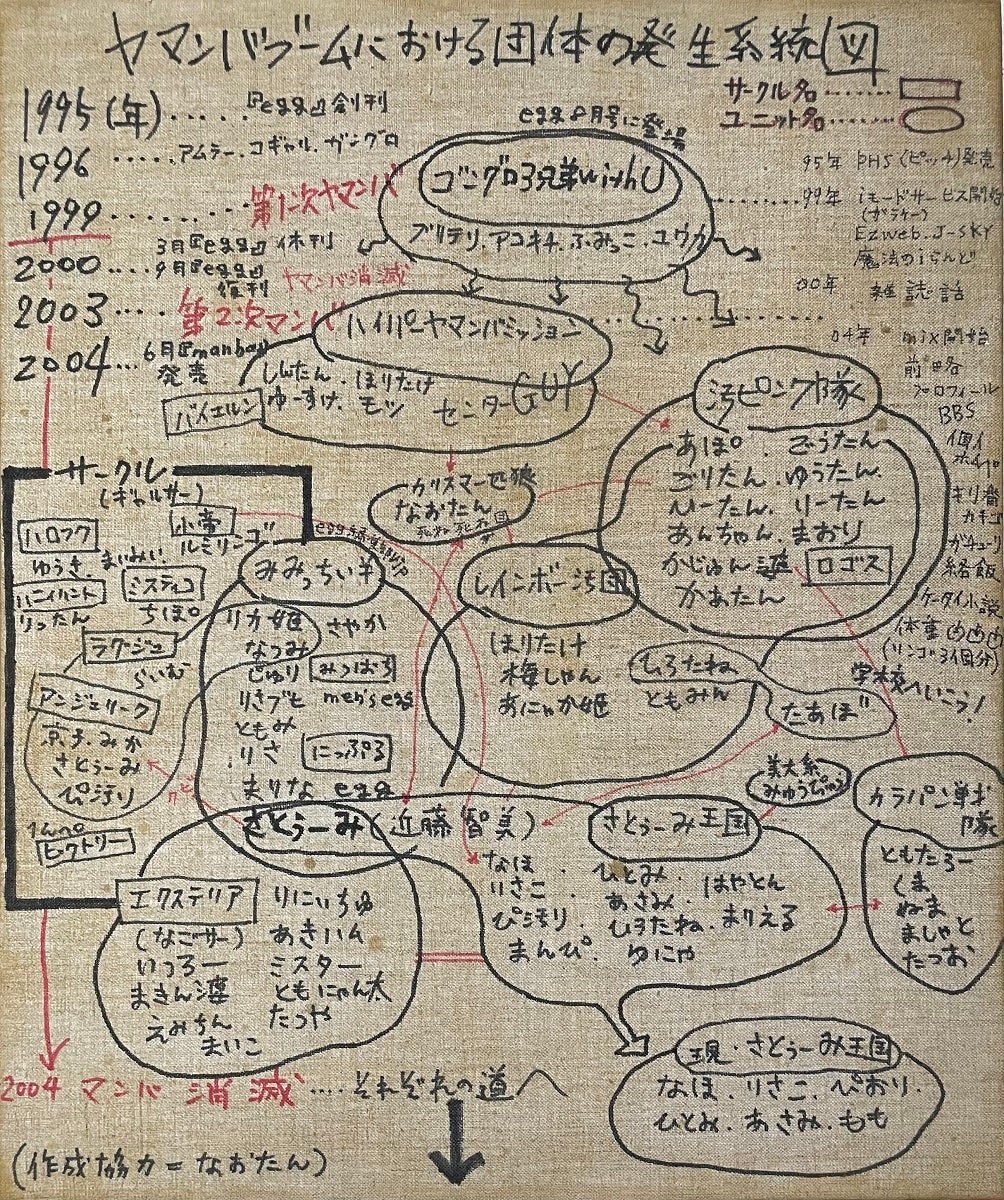 ヤマンバブームにおける団体の発生系統図
サークル名……
ユニット名……
1995(年)……『egg』創刊
1996……アムラー.コギャル.ガングロ
1999……第1次ヤマンバ
3月『egg』休刊
2000……9月『egg』復刊
ヤマンバ消滅
2003……第2次マンバ
2004…6月『manba』発売
egg8月号に登場
ゴングロ3兄弟withU
ブリテリ.アコキチ.ふみっこ.ユウカ
95年 PHS(ピッチ)発売
99年 iモードサービス開始
Ezweb.J-SKY
魔法のiらんど
00年 雑誌・話
04年 mix開始
前略
プロフィール
BBS
キリ番
ケータイ小説
学校へいこう!
ハイパーヤマンバミッション
しんたん.ほりたけ
ゆーすけ.モツ
センターGUY
バイエルン
汚ピンク隊
あぽ。ごうたん
ごりたん.ゆうたん
ひーたん.りーたん
あんちゃん.まおり
かじゅん婆
ロゴス
かあたん
カリスマ一匹狼
なおたん
サークル
(ギャルサー)
小帝
ルミリンゴ
ハロフク
ゆうき.まいみい
ミスティコ
ちぽ。
りったん
ラグージュ
らいむ
アンジェリーク
京子.みか
さとぅーみ
ぴ汚り
ビクトリー
egg編集部VIP
みみっちぃ羊
リカ姫
さやか
なつみ
じゅり
みつばち
りさブヒ
men's egg
ともみ
りさ
にっぷる
まりな egg
レインボー汚国
ほりたけ
梅しゃん
あにゃか姫
ひろたね
ともみん
たあぼ
美大系
みゅうぴゅう
カラパン戦士隊
ともたろー
くま
ぬま
ましゃと
たつお
さとぅーみ(近藤智美)
さとぅーみ王国
なほ.
りさこ.
ぴ汚り
まんぴ.
ひとみ.
あさみ.
ひろたね.
ゆにゃ
はやとん
まりえる
エクステリア
(なごサー)
いつろー
まきん婆
えみちん
まいこ
りにいちゅ
あきいム
ミスター
ともにゃん太
たつや
現・さとぅーみ王国
なほ.りさこ.ぴおり.
ひとみ.あさみ.もも
2004 マンバ 消滅……それぞれの道へ
(作成協力=なおたん)